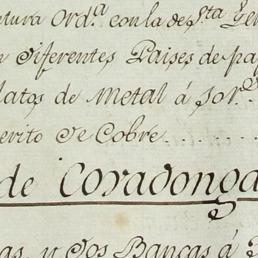 tura Ord.ª con la de Sta Gen
n diferentes Paises de pa
latos de metal á Jor.
erito de Cobre
de Covadonga
as, y dos Bancas á